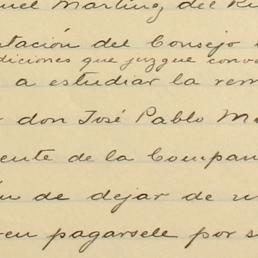 uel Martinez del Ri
tación del Consejo
diciones que juzgue conve
a estudiar la rem
don José Pablo Ma
ente de la Compan
n de dejar de
en pagarsele por s